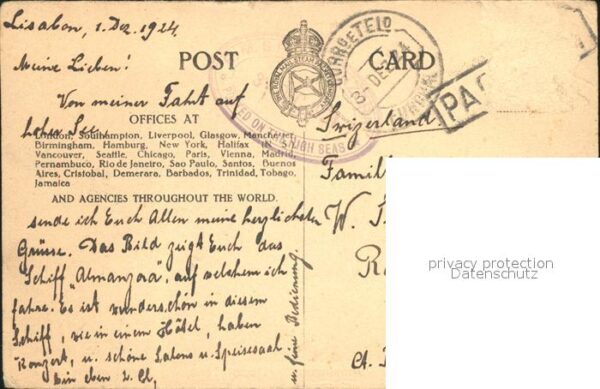 Lisabon, 1. Dez. 1924
POST CARD
Meine Lieben!
CORRO E TELO
3 - DEZ 24
PA
THE ROYAL MAIL STEAM PACKET COMPANY
POSTED ON THE HIGH SEAS
Von meiner Fahrt auf
hoher See
OFFICES AT
London, Southampton, Liverpool, Glasgow, Manchester,
Birmingham, Hamburg, New York, Halifax
Vancouver, Seattle, Chicago, Paris, Vienna, Madrid,
Pernambuco, Rio de Janeiro, Sao Paulo, Santos, Buenos
Aires, Cristobal, Demerara, Barbados, Trinidad, Tobago,
Jamaica
AND AGENCIES THROUGHOUT THE WORLD.
sende ich Euch Allen meine herzlichsten
Grüsse. Das Bild zeigt Euch das
Schiff "Almanzora", auf welchem ich
fahre. Es ist wunderschön in diesem
Schiff, wie in einem Hôtel, haben
Konzert, u. schöne Salons u. Speisesaal
Bin eben 2. Cl,
u. feine Bedienung.
Swizerland
Famil
W.
privacy protection
Datenschutz